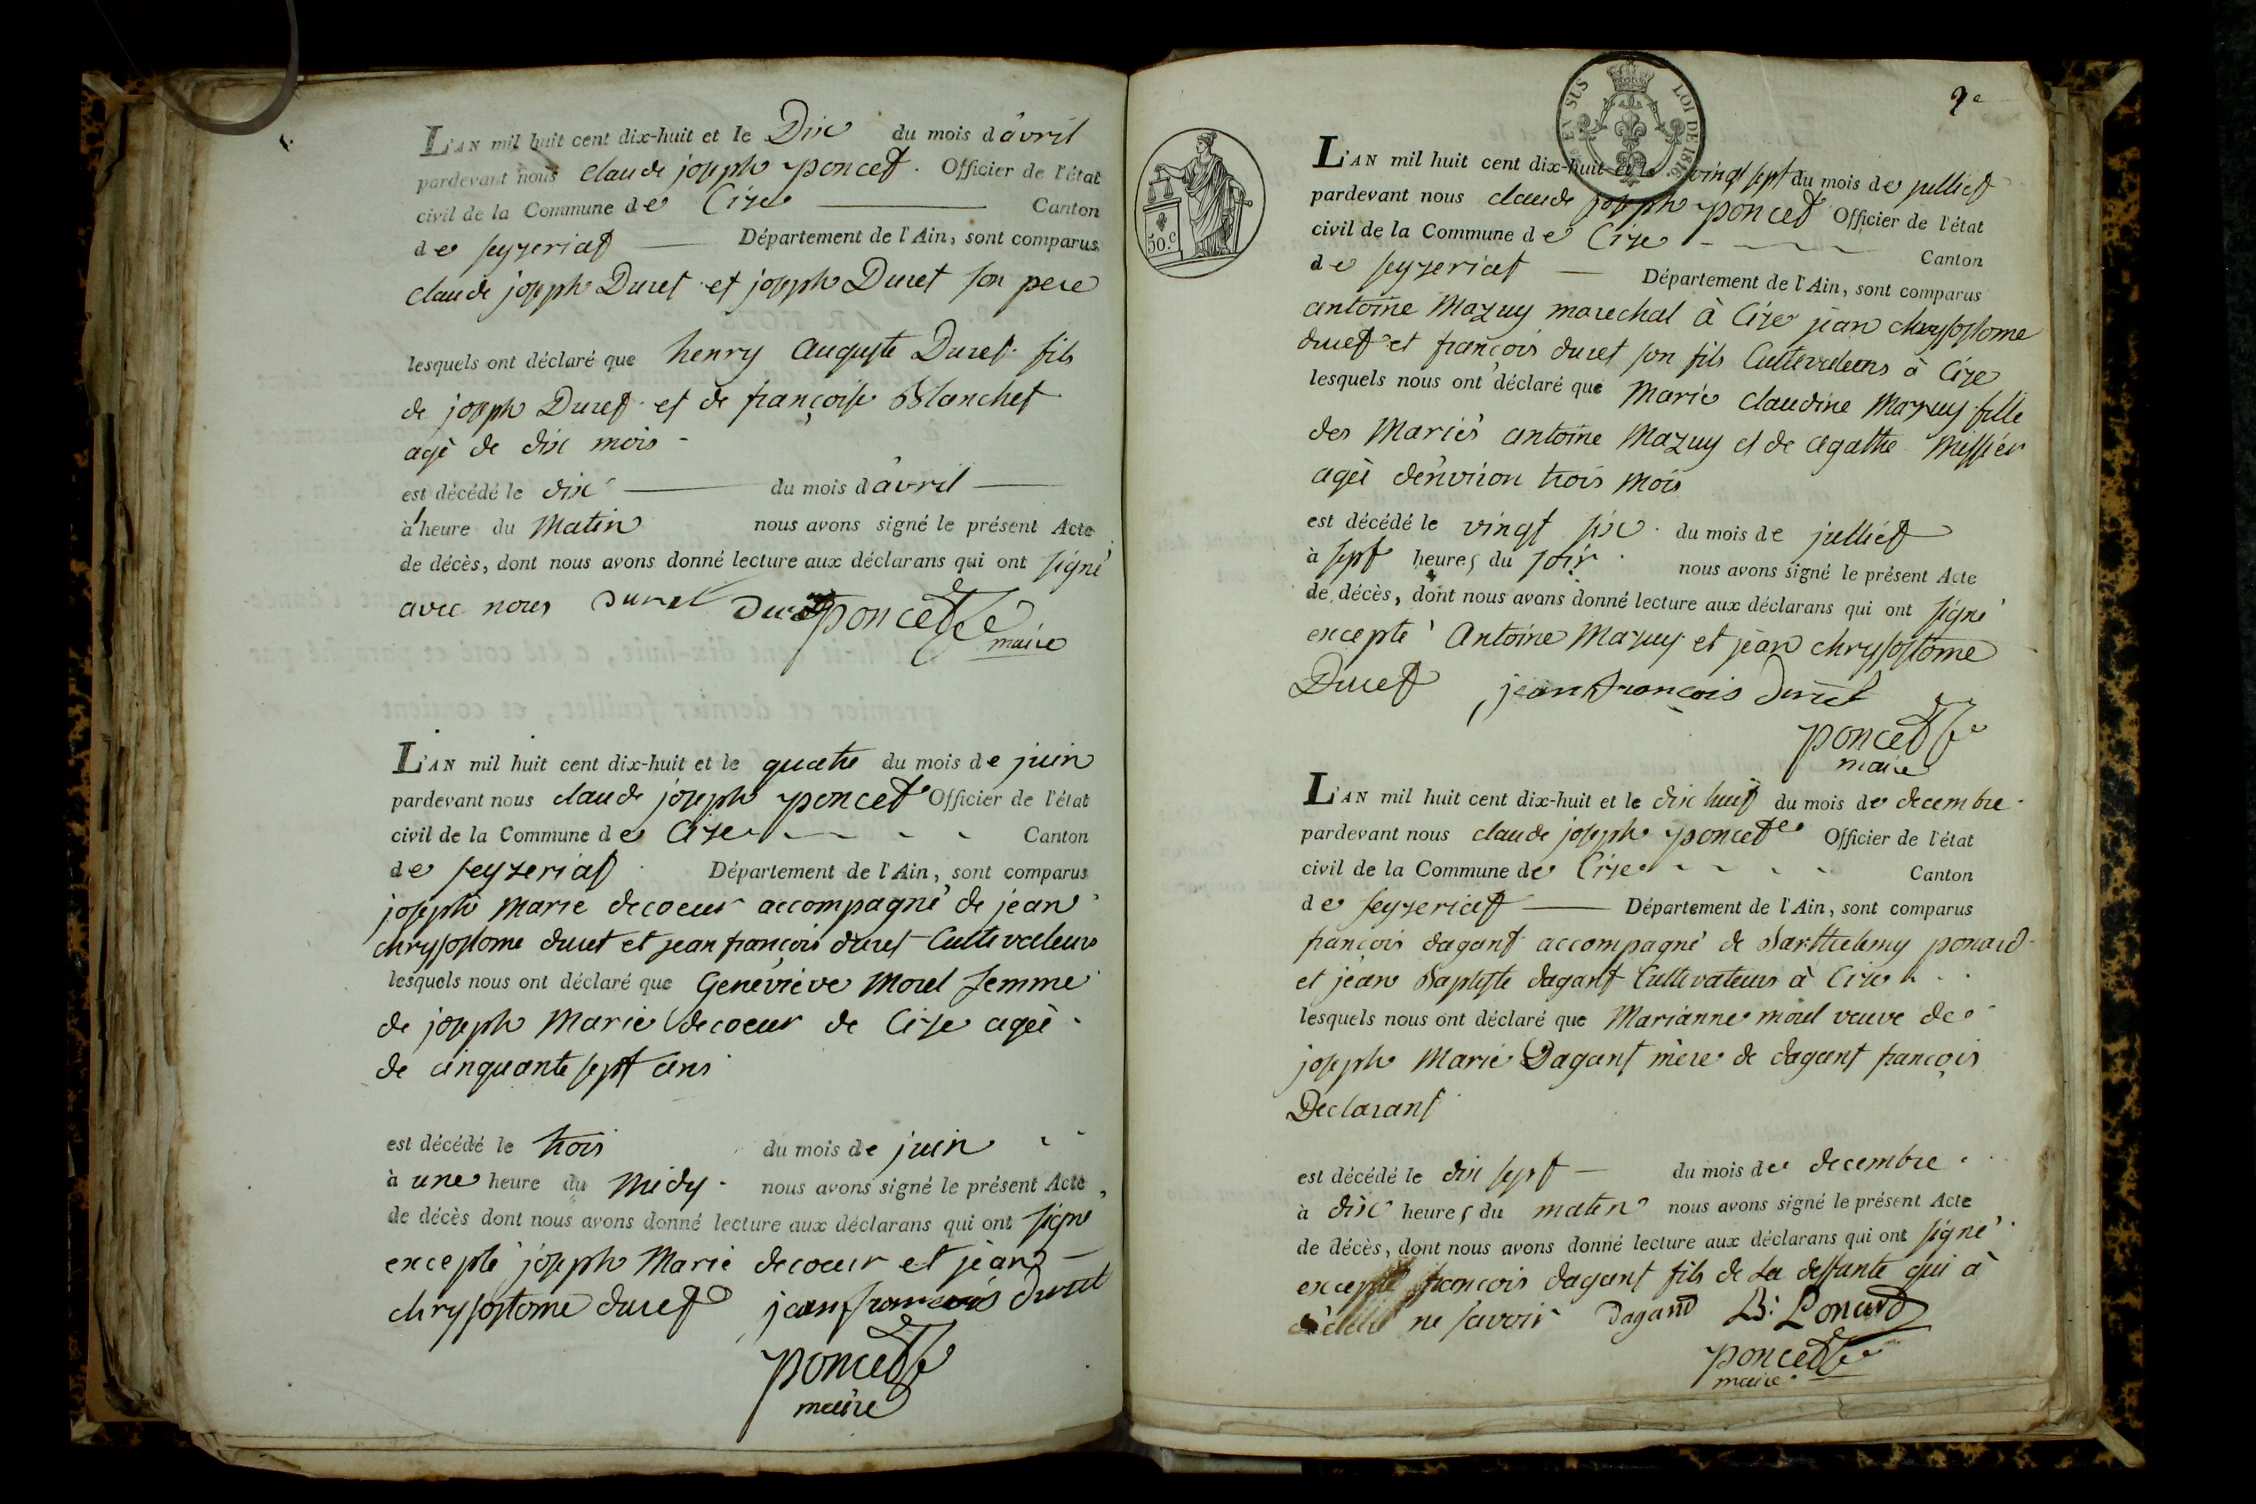 L'AN mil huit cent dix-huit et le Dix du mois d'avril
pardevant nous claude joseph poncet. Officier de l'état
civil de la Commune de Cize Canton
de seyzeriat Département de l'Ain, sont comparus
claude joseph Duret et joseph Duret son pere
lesquels ont déclaré que henry auguste Duret fils
de joseph Duret et de françoise Blanchet
agé de dix mois
est décédé le dix du mois d'avril
à heure du Matin nous avons signé le présent Acte
de décès, dont nous avons donné lecture aux déclarans qui ont signé
avec nous Duret Duret poncet
maire
L'AN mil huit cent dix-huit et le quatre du mois de juin
pardevant nous claude joseph poncet Officier de l'état
civil de la Commune de Cize Canton
de seyzeriat Département de l'Ain, sont comparus
joseph Marie decoeur accompagné de jean
chrysostome duret et jean françois duret Cultivateurs
lesquels nous ont déclaré que Geneviève Morel femme
de joseph Marie decoeur de Cize agée
de cinquante sept ans
est décédé le trois du mois de juin
à une heure du Midy nous avons signé le présent Acte
de décès dont nous avons donné lecture aux déclarans qui ont signé
excepté joseph Marie decoeur et jean
chrysostome duret jean françois duret
poncet
maire
2e
EN SUS LOI DE 1816
50.c
L'AN mil huit cent dix-huit et le vingt sept du mois de julliet
pardevant nous claude joseph poncet Officier de l'état
civil de la Commune de Cize Canton
de seyzeriat Département de l'Ain, sont comparus
antoine Mazuy marechal à Cize jean chrysostome
duret et françois duret son fils Cultivateurs à Cize
lesquels nous ont déclaré que Marie claudine Mazuy fille
des Mariés antoine Mazuy et de agathe Missier
agée d'environ trois Mois
est décédé le vingt six du mois de julliet
à sept heures du soir nous avons signé le présent Acte
de décès, dont nous avons donné lecture aux déclarans qui ont signé
excepté Antoine Mazuy et jean chrysostome
Duret jean françois duret
poncet
maire
L'AN mil huit cent dix-huit et le dix huit du mois de decembre
pardevant nous claude joseph poncet Officier de l'état
civil de la Commune de Cize Canton
de seyzeriat Département de l'Ain, sont comparus
françois dagant accompagné de Barthelemy ponard
et jean Baptiste dagant Cultivateurs à Cize
lesquels nous ont déclaré que Marianne morel veuve de
joseph Marie Dagant mère de dagant françois
Declarant
est décédé le dix sept du mois de decembre
à dix heures du matin nous avons signé le présent Acte
de décès, dont nous avons donné lecture aux déclarans qui ont signé
excepté françois dagant fils de La deffunte qui à
déclaré ne savoir Dagand B. Ponard
poncet
maire